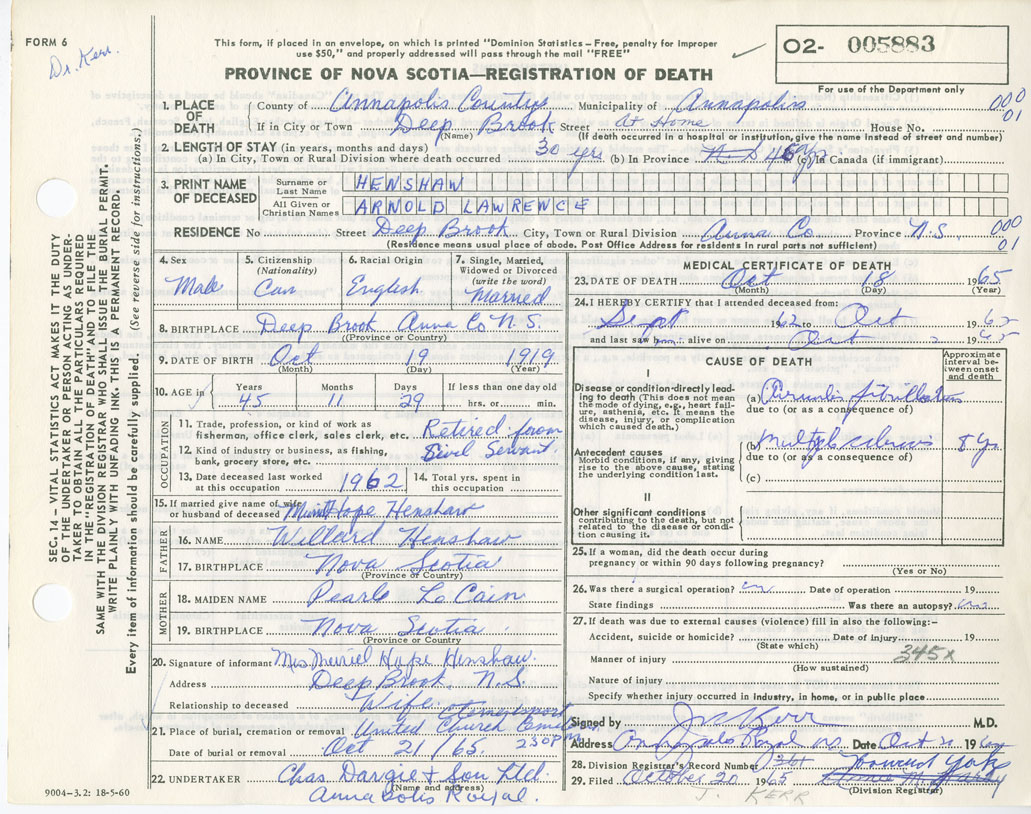 FORM 6
Dr. Kerr.
This form, if placed in an envelope, on which is printed "Dominion Statistics – Free, penalty for improper
use $50," and properly addressed will pass through the mail "FREE"
O2- 005883
For use of the Department only
PROVINCE OF NOVA SCOTIA—REGISTRATION OF DEATH
SEC. 14 – VITAL STATISTICS ACT MAKES IT THE DUTY
OF THE UNDERTAKER OR PERSON ACTING AS UNDER-
TAKER TO OBTAIN ALL THE PARTICULARS REQUIRED
IN THE "REGISTRATION OF DEATH" AND TO FILE THE
SAME WITH THE DIVISION REGISTRAR WHO SHALL ISSUE THE BURIAL PERMIT.
WRITE PLAINLY WITH UNFADING INK. THIS IS A PERMANENT RECORD.
Every item of information should be carefully supplied. (See reverse side for instructions.)
1. PLACE OF DEATH
County of Annapolis County Municipality of Annapolis 000
01
If in City or Town Deep Brook Street At Home House No.
(Name) (If death occurred in a hospital or institution, give the name instead of street and number)
2. LENGTH OF STAY (in years, months and days)
(a) In City, Town or Rural Division where death occurred 30 yrs (b) In Province (c) In Canada (if immigrant)
3. PRINT NAME OF DECEASED
Surname or Last Name HENSHAW
All Given or Christian Names ARNOLD LAWRENCE
RESIDENCE No Street Deep Brook City, Town or Rural Division Anna Co Province N.S. 000
01
(Residence means usual place of abode. Post Office Address for residents in rural parts not sufficient)
4. Sex Male
5. Citizenship (Nationality) Can
6. Racial Origin English
7. Single, Married, Widowed or Divorced (write the word) Married
8. BIRTHPLACE Deep Brook Anna Co N.S.
(Province or Country)
9. DATE OF BIRTH Oct 19 1919
(Month) (Day) (Year)
10. AGE in Years 45 Months 11 Days 29 If less than one day old hrs. or min.
OCCUPATION
11. Trade, profession, or kind of work as fisherman, office clerk, sales clerk, etc. Retired from
12. Kind of industry or business, as fishing, bank, grocery store, etc. Civil Servant
13. Date deceased last worked at this occupation 1962
14. Total yrs. spent in this occupation
15. If married give name of wife or husband of deceased Hope Henshaw
FATHER
16. NAME Willard Henshaw
17. BIRTHPLACE Nova Scotia
(Province or Country)
MOTHER
18. MAIDEN NAME Pearle Le Cain
19. BIRTHPLACE Nova Scotia
(Province or Country)
20. Signature of informant Mrs Merriel Hope Henshaw.
Address Deep Brook, N.S.
Relationship to deceased Wife
21. Place of burial, cremation or removal United Church Cemetery
Date of burial or removal Oct 21/65. 230 PM
22. UNDERTAKER Chas. Dargie & Son Ltd.
(Name and address)
Annapolis Royal.
9004-3.2: 18-5-60
MEDICAL CERTIFICATE OF DEATH
23. DATE OF DEATH Oct 18 1965
(Month) (Day) (Year)
24. I HEREBY CERTIFY that I attended deceased from:
Sept 1962 to Oct 1965
and last saw h alive on Oct 1965
CAUSE OF DEATH
Approximate interval between onset and death
I
Disease or condition directly leading to death (This does not mean the mode of dying, e.g., heart failure, asthenia, etc. It means the disease, injury, or complication which caused death.)
(a) fibrillation
due to (or as a consequence of)
Antecedent causes
Morbid conditions, if any, giving rise to the above cause, stating the underlying condition last.
(b) multiple sclerosis 8 yrs
due to (or as a consequence of)
(c)
II
Other significant conditions
contributing to the death, but not related to the disease or condition causing it.
25. If a woman, did the death occur during
pregnancy or within 90 days following pregnancy?
(Yes or No)
26. Was there a surgical operation? no Date of operation 19
State findings Was there an autopsy? no
27. If death was due to external causes (violence) fill in also the following:–
Accident, suicide or homicide? Date of injury 19
(State which)
345x
Manner of injury
(How sustained)
Nature of injury
Specify whether injury occurred in industry, in home, or in public place
Signed by J Kerr M.D.
Address Annapolis Royal NS. Date Oct 20 1965
28. Division Registrar's Record Number
29. Filed October 20 1965
(Division Registrar)
J. KERR